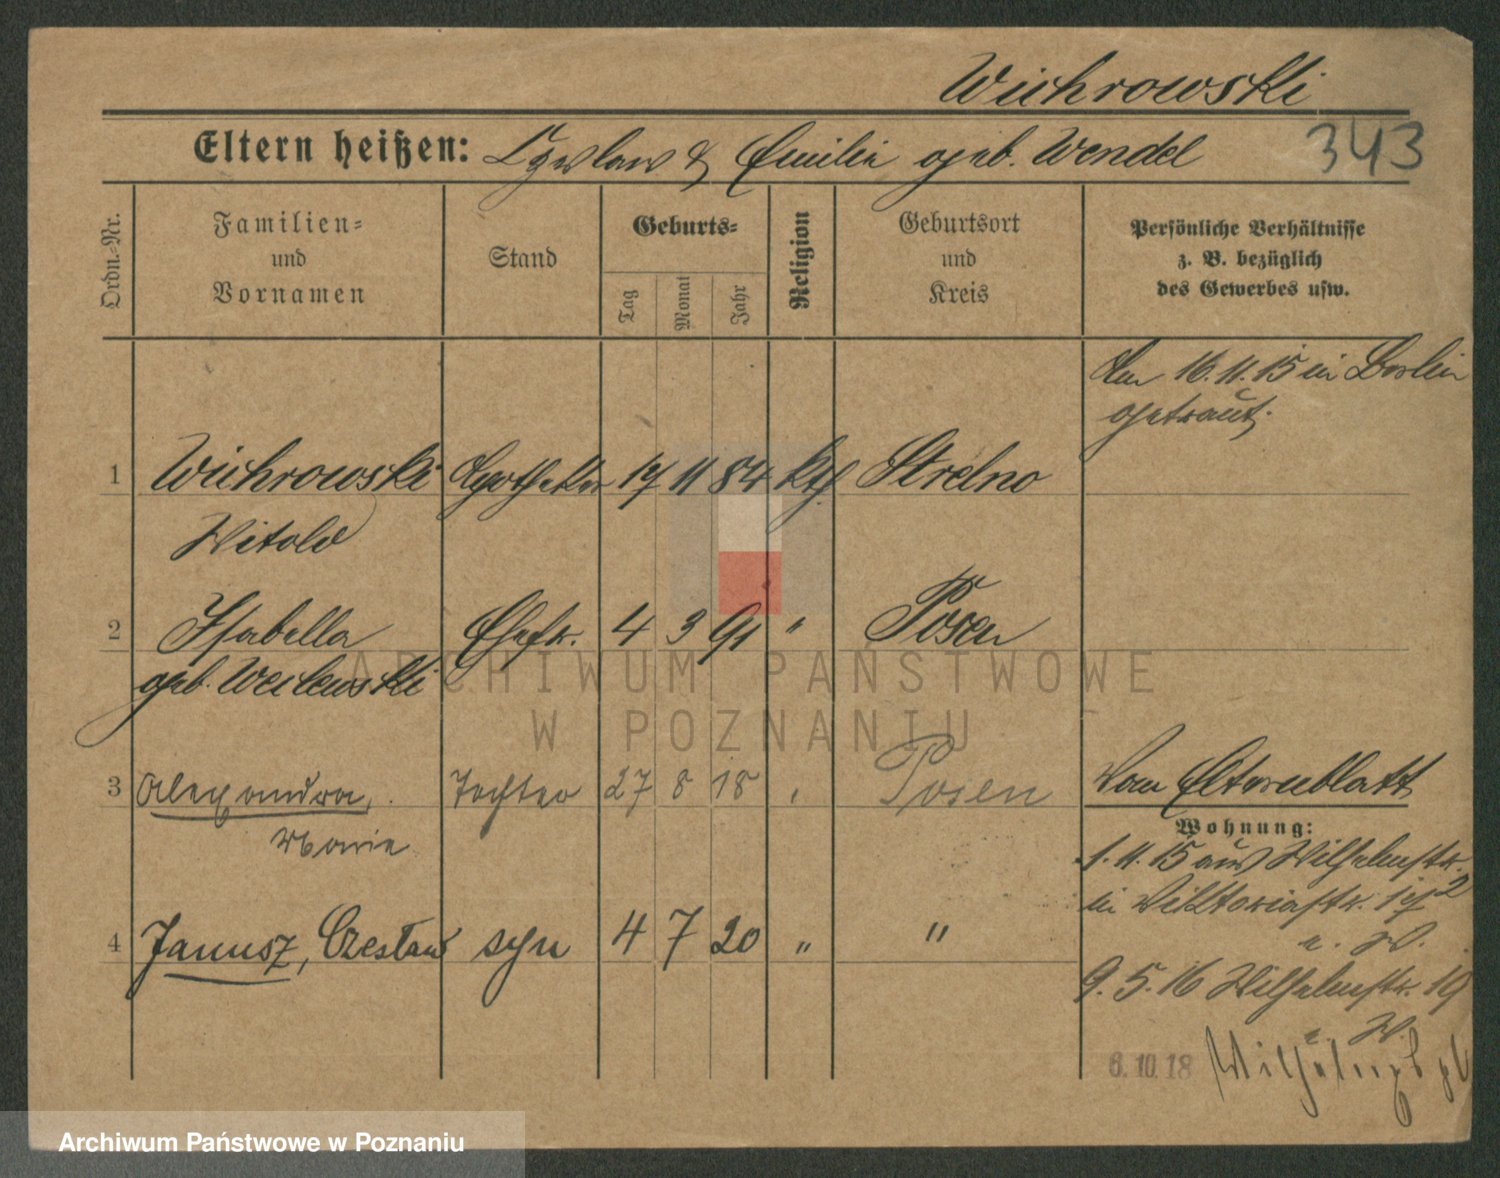 Wichrowski
343
Eltern heißen: Czeslaw & Emilia geb. Wendel
Ordn.-Nr.
Familien-
und
Vornamen
Stand
Geburts-
Tag
Monat
Jahr
Religion
Geburtsort
und
Kreis
Persönliche Verhältnisse
z. B. bezüglich
des Gewerbes usw.
Am 16.11.15 in Berlin
getraut.
1 Wichrowski Apotheker 17 11 84 kth. Strelno
Witold
2 Isabella Ehefr. 4 3 91 " Posen
geb.
ARCHIWUM PAŃSTWOWE
W POZNANIU
3 Alexandra, Tochter 27 8 18 " Posen
Maria
Vom Elternblatt
Wohnung:
1.11.15 aus Wilhelmstr.
in Viktoriastr.
4 Janusz, Czesław syn 4 7 20 " "
9.5.16 Wilhelmstr. 19
6.10.18
Archiwum Państwowe w Poznaniu